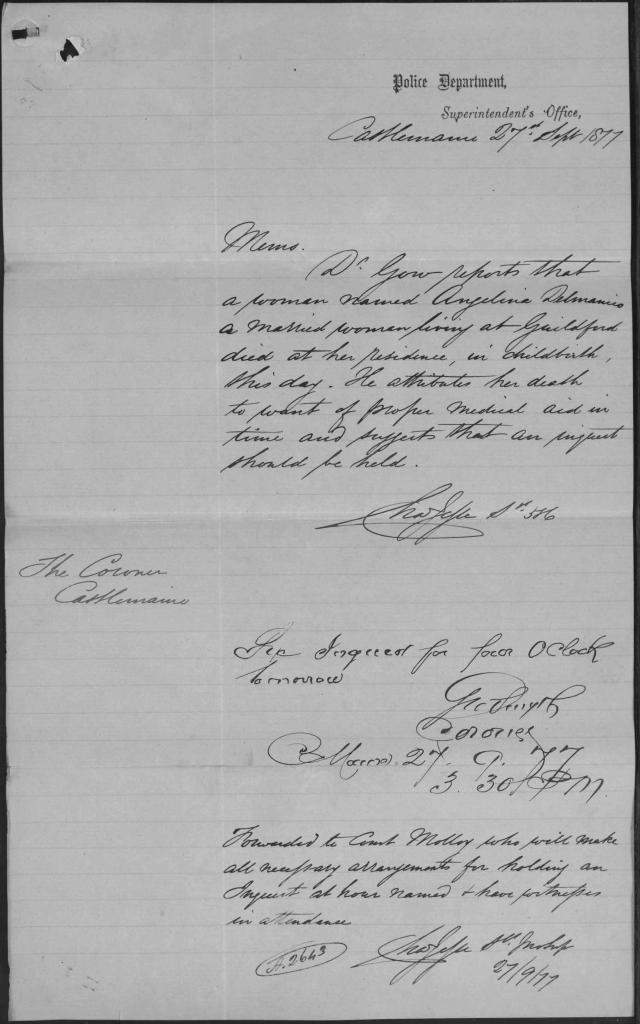 Police Department,
Superintendent's Office,
Castlemaine 27th Sept 1877
Memo.
Dr. Gow reports that
a woman named Angelina Delmanico
a married woman living at Guildford
died at her residence, in childbirth,
this day. He attributes her death
to want of proper medical aid in
time and suggests that an inquest
should be held.
St. 586
The Coroner
Castlemaine
Inquest for four O'Clock
tomorrow
Coroner
27. 9. 77
3.30 PM
Forwarded to Const Molloy who will make
all necessary arrangements for holding an
Inquest at hour named & have witnesses
in attendance
A.2643
27/9/77